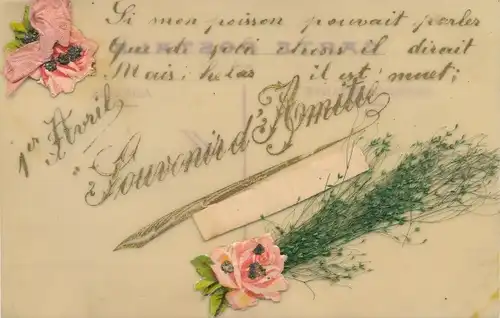 Si mon poisson pouvait parler
Que de joli chose il dirait
Mais, helas il est, muet;
1er Avril
Souvenir d'Amitié